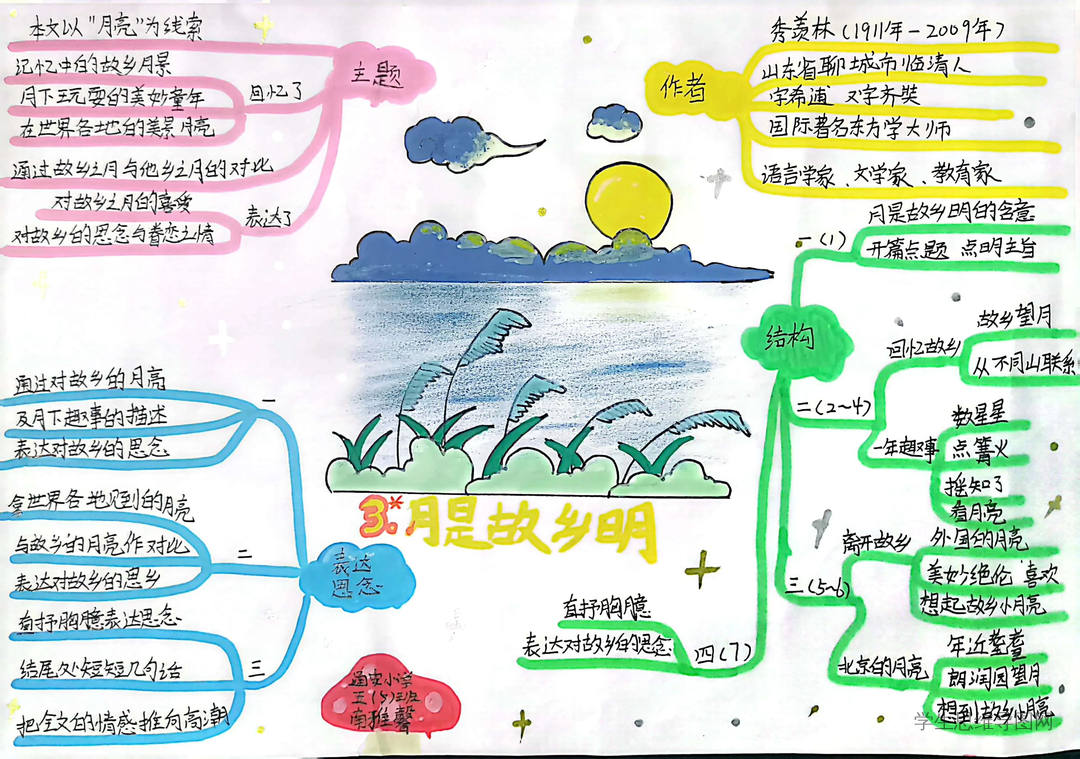 本文以“月亮”为线索
主题
记忆中的故乡月景
回忆了
月下玩耍的美妙童年
在世界各地的美景月亮
通过故乡之月与他乡之月的对比
对故乡之月的喜爱
表达了
对故乡的思念与眷恋之情
作者
季羡林(1911年-2009年)
山东省聊城市临清人
字希逋 又字齐奘
国际著名东方学大师
语言学家、文学家、教育家
结构
一(1)
月是故乡明的含意
开篇点题 点明主旨
二(2~4)
回忆故乡
故乡望月
从不同山联系
一年趣事
数星星
点篝火
摇知了
看月亮
三(5~6)
离开故乡
外国的月亮
美妙绝伦 喜欢
想起故乡小月亮
北京的月亮
年近耄耋
朗润园望月
想到故乡小月亮
四(7)
直抒胸臆
表达对故乡的思念
3.*月是故乡明
表达
思念
一
通过对故乡的月亮
及月下趣事的描述
表达对故乡的思念
二
拿世界各地见到的月亮
与故乡的月亮作对比
表达对故乡的思乡
三
直抒胸臆表达思念
结尾处短短几句话
把全文的情感推向高潮
小学
五(5)班
南雅馨
学生思维导图网